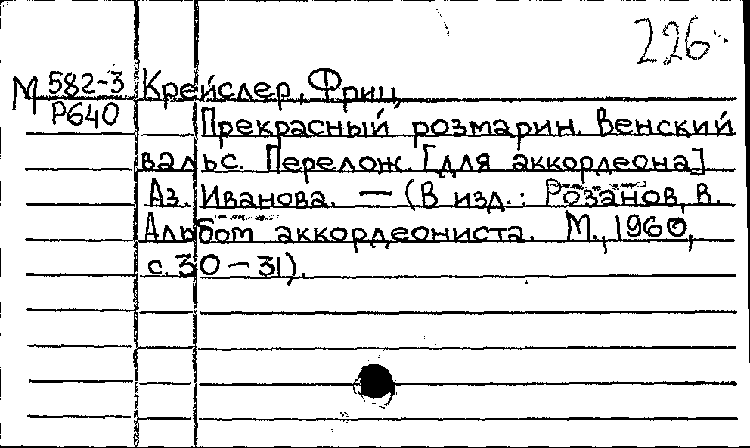 226
М 582-3 Крейслер, Фриц,
Р640
Прекрасный розмарин. Венский
вальс. Перелож. [для аккордеона]
Аз. Иванова. — (В изд.: Розанов, В.
Альбом аккордеониста. М., 1960,
с. 30-31).